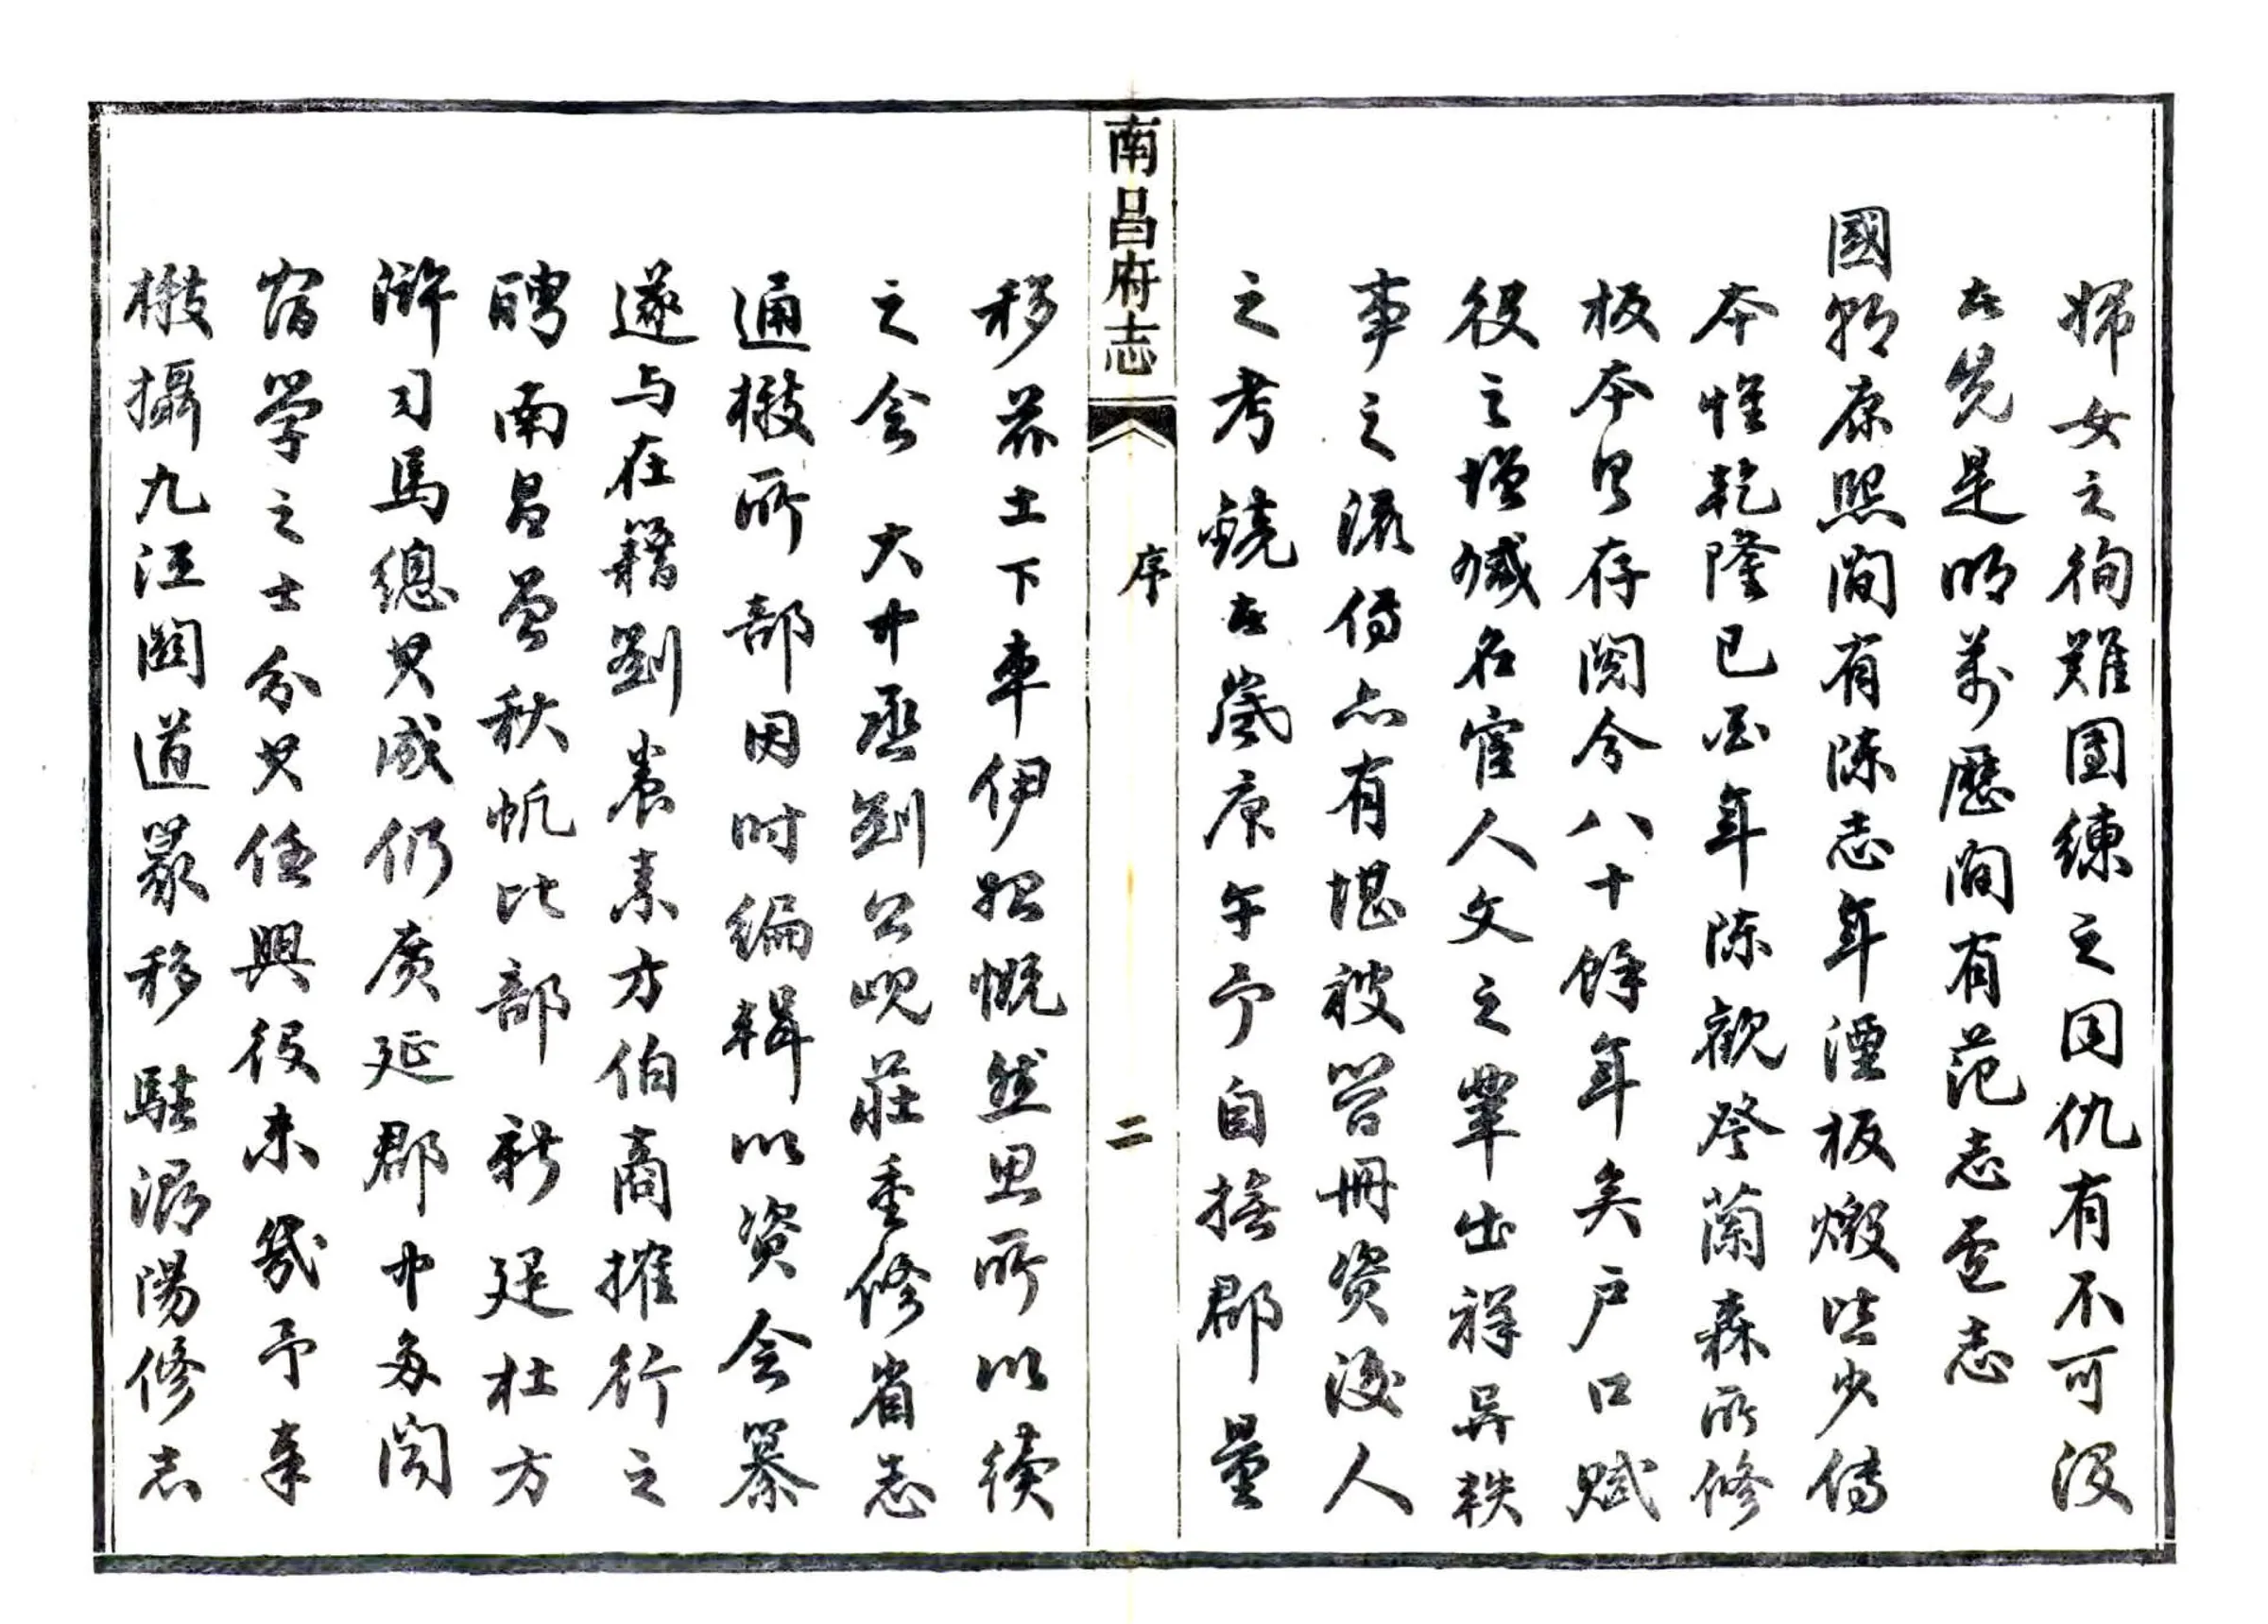 婦女之徇難團練之同仇有不可沒
者先是明萬歷間有范志盧志
國朝康熙間有陳志年湮板燬皆少傳
本惟乾隆己酉年陳觀詧蘭森所修
板本只存閱今八十餘年矣戶口賦
役之增減名宦人文之輩出祥异軼
事之流傳亦有堪被筦冊資後人
之考鏡者歲庚午予自撫郡量
移茲土下車伊始慨然思所以續
之會大中丞劉公峴莊重修省志
通檄所部因时编輯以资会纂
遂与在籍劉養素方伯商搉行之
聘南昌曾秋帆比部新建杜方
澥司馬總其成仍廣延郡中多聞
宿学之士分其任興役未幾予奉
檄攝九江関道篆移駐潯陽修志
南昌府志
序
二